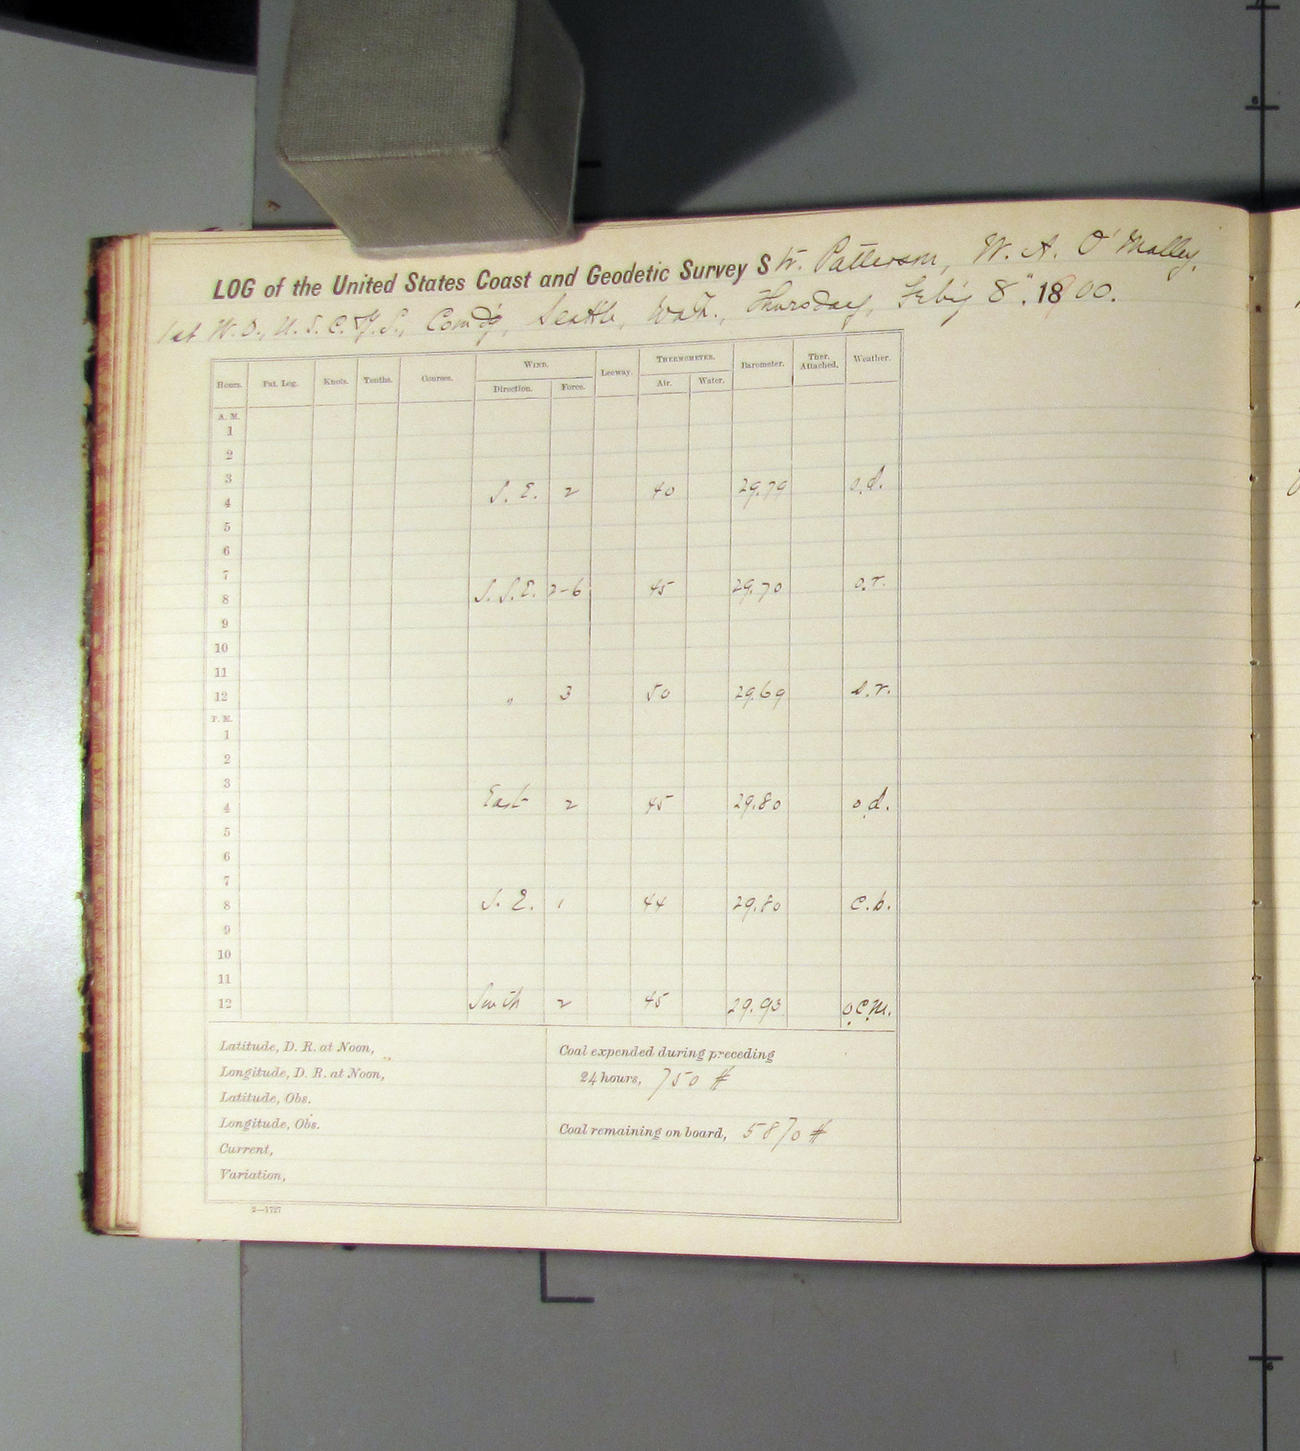 LOG of the United States Coast and Geodetic Survey Str. Patterson, W. A. O'Malley,
1st W.O., U.S.C.&G.S., Comd'g, Seattle, Wash., Thursday, Feb'y 8", 1900.
Hours. Pat. Log. Knots. Tenths. Courses. WIND. Leeway. THERMOMETER. Barometer. Ther. Attached. Weather.
Direction. Force. Air. Water.
A. M.
1
2
3
4 S.E. 2 40 29.79 o.d.
5
6
7
8 S.S.E. 2-6 45 29.70 o.r.
9
10
11
12 " 3 50 29.69 o.r.
P. M.
1
2
3
4 East 2 45 29.80 o.d.
5
6
7
8 S.E. 1 44 29.80 c.b.
9
10
11
12 South 2 45 29.93 o.c.m.
Latitude, D. R. at Noon,
Longitude, D. R. at Noon,
Latitude, Obs.
Longitude, Obs.
Current,
Variation,
Coal expended during preceding
24 hours, 750 #
Coal remaining on board, 5870 #
2—1727